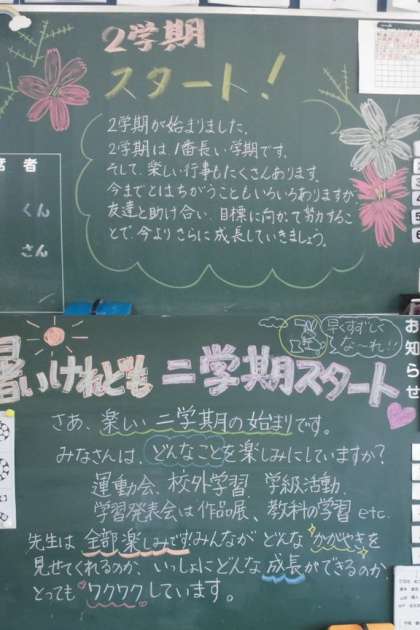 2学期
スタート!
2学期が始まりました。
2学期は1番長い学期です。
そして、楽しい行事もたくさんあります。
今までとはちがうこともいろいろありますが
友達と助け合い、目標に向かって努力するこ
とで、今よりさらに成長していきましょう。
席者
くん
さん
お知らせ
早くすずしく
な~れ!!
暑いけれども 二学期スタート
さあ、楽しい二学期の始まりです。
みなさんは、どんなことを楽しみにしていますか?
運動会、校外学習、学級活動、
学習発表会は作品展、教科の学習 etc.
先生は 全部楽しみです!みんなが どんな かがやきを
見せてくれるのか、いっしょにどんな成長ができるのか、
とっても ワクワクしています。